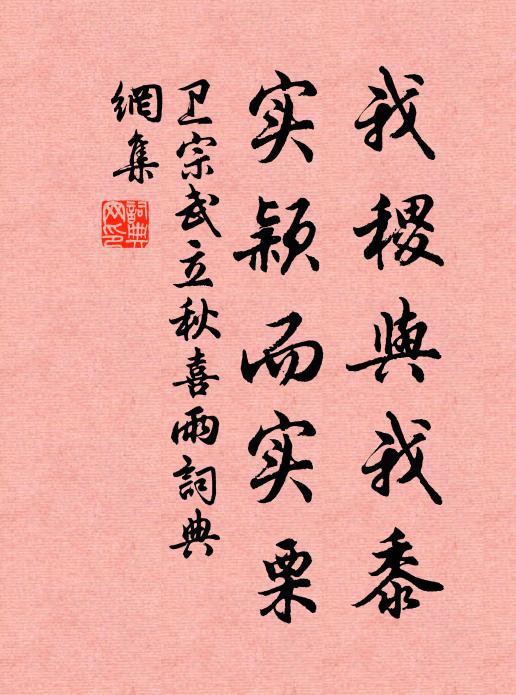 我稷與我黍
实颖而实栗
卫宗武立秋喜雨詞典
網集
詞典
网印